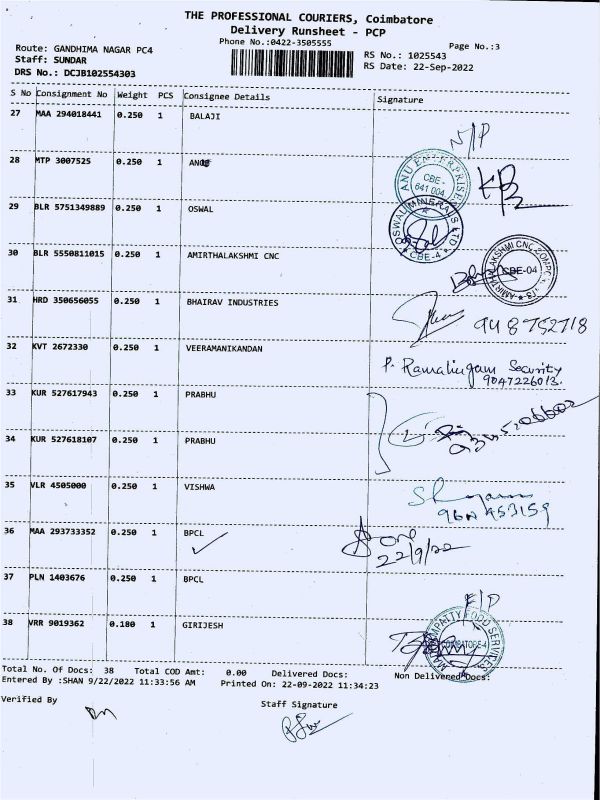 THE PROFESSIONAL COURIERS, Coimbatore
Delivery Runsheet - PCP
Phone No.:0422-3505555
Page No.:3
Route: GANDHIMA NAGAR PC4
Staff: SUNDAR
DRS No.: DCJB102554303
RS No.: 1025543
RS Date: 22-Sep-2022
S No Consignment No Weight PCS Consignee Details Signature
27 MAA 294018441 0.250 1 BALAJI
N/P
28 MTP 3007525 0.250 1
ANU ENTERPRISES CBE - 641 004
29 BLR 5751349889 0.250 1 OSWAL
OSWAL MINERALS LTD CBE-4
30 BLR 5550811015 0.250 1 AMIRTHALAKSHMI CNC
AMIRTHALAKSHMI CNC CBE-04
31 HRD 350656055 0.250 1 BHAIRAV INDUSTRIES
32 KVT 2672330 0.250 1 VEERAMANIKANDAN
P. Ramalingam Security
9047226013.
33 KUR 527617943 0.250 1 PRABHU
34 KUR 527618107 0.250 1 PRABHU
35 VLR 4505000 0.250 1 VISHWA
36 MAA 293733352 0.250 1 BPCL
22/9/22
37 PLN 1403676 0.250 1 BPCL
38 VRR 9019362 0.180 1 GIRIJESH
FOOD SERVICES COIMBATORE-4
Total No. Of Docs: 38 Total COD Amt: 0.00 Delivered Docs: Non Delivered Docs:
Entered By :SHAN 9/22/2022 11:33:56 AM Printed On: 22-09-2022 11:34:23
Verified By
Staff Signature